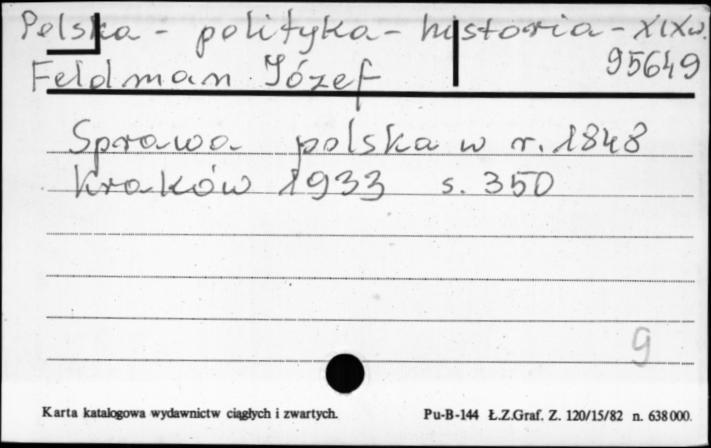 Polska - polityka - historia - XIX w.
95649
Feldman Józef
Sprawa polska w r. 1848
Kraków 1933 s. 350
9
Karta katalogowa wydawnictw ciągłych i zwartych.
Pu-B-144 Ł.Z.Graf. Z. 120/15/82 n. 638000.